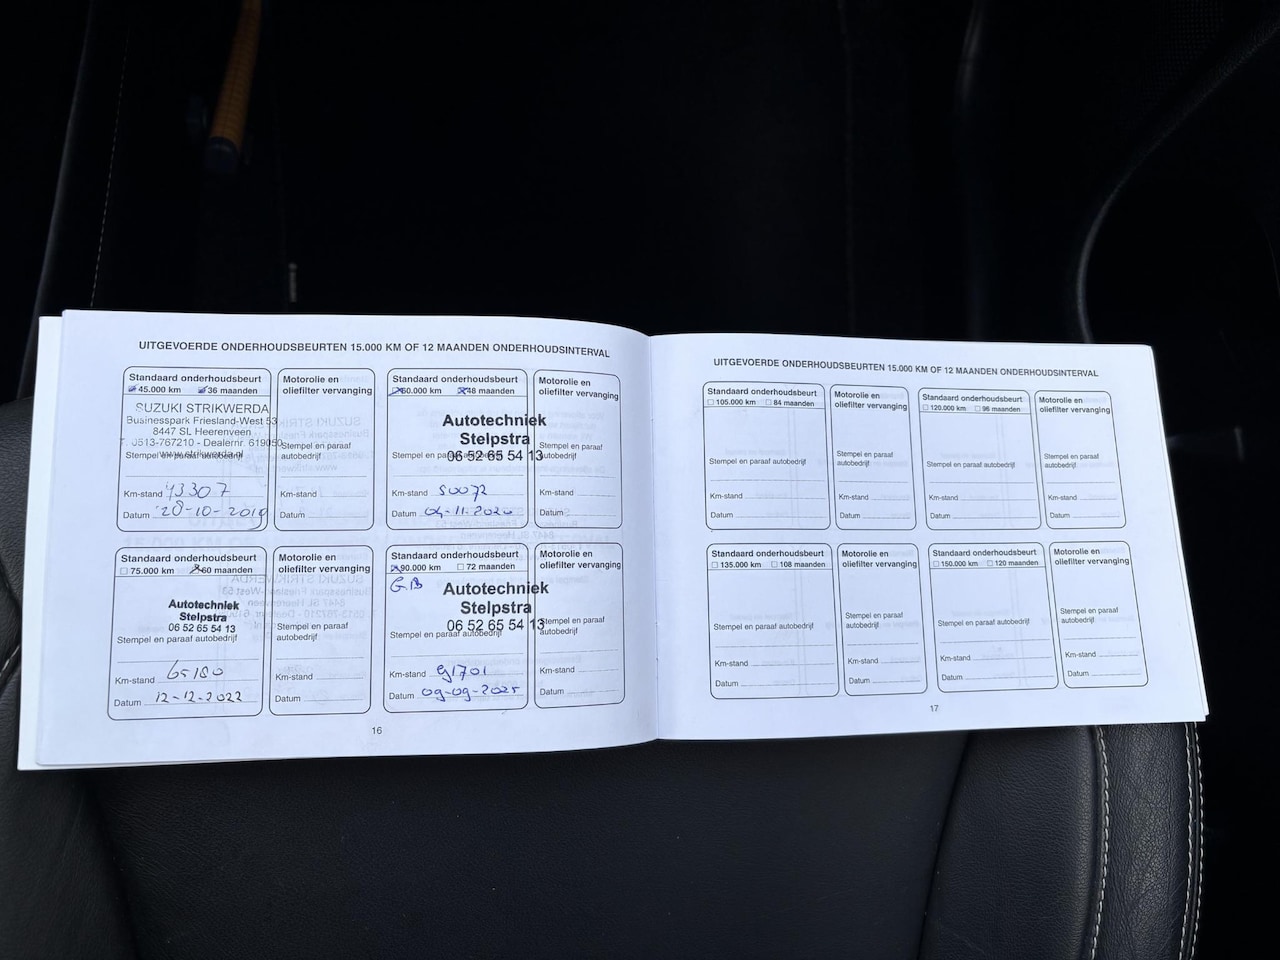 UITGEVOERDE ONDERHOUDSBEURTEN 15.000 KM OF 12 MAANDEN ONDERHOUDSINTERVAL
Standaard onderhoudsbeurt
45.000 km 36 maanden
SUZUKI STRIKWERDA
Businesspark Friesland-West 53
8447 SL Heerenveen
T. 0513-767210 - Dealernr. 619050
www.strikwerda.nl
Stempel en paraaf autobedrijf
Km-stand 43307
Datum 28-10-2019
Motorolie en
oliefilter vervanging
Stempel en paraaf
autobedrijf
Km-stand
Datum
Standaard onderhoudsbeurt
60.000 km 48 maanden
Autotechniek
Stelpstra
06 52 65 54 13
Stempel en paraaf autobedrijf
Km-stand 50072
Datum 04-11-2020
Motorolie en
oliefilter vervanging
Stempel en paraaf
autobedrijf
Km-stand
Datum
Standaard onderhoudsbeurt
75.000 km 60 maanden
Autotechniek
Stelpstra
06 52 65 54 13
Stempel en paraaf autobedrijf
Km-stand 65180
Datum 12-12-2022
Motorolie en
oliefilter vervanging
Stempel en paraaf
autobedrijf
Km-stand
Datum
Standaard onderhoudsbeurt
90.000 km 72 maanden
G.B
Autotechniek
Stelpstra
06 52 65 54 13
Stempel en paraaf autobedrijf
Km-stand 91701
Datum 09-09-2025
Motorolie en
oliefilter vervanging
Stempel en paraaf
autobedrijf
Km-stand
Datum
16
UITGEVOERDE ONDERHOUDSBEURTEN 15.000 KM OF 12 MAANDEN ONDERHOUDSINTERVAL
Standaard onderhoudsbeurt
105.000 km 84 maanden
Stempel en paraaf autobedrijf
Km-stand
Datum
Motorolie en
oliefilter vervanging
Stempel en paraaf
autobedrijf
Km-stand
Datum
Standaard onderhoudsbeurt
120.000 km 96 maanden
Stempel en paraaf autobedrijf
Km-stand
Datum
Motorolie en
oliefilter vervanging
Stempel en paraaf
autobedrijf
Km-stand
Datum
Standaard onderhoudsbeurt
135.000 km 108 maanden
Stempel en paraaf autobedrijf
Km-stand
Datum
Motorolie en
oliefilter vervanging
Stempel en paraaf
autobedrijf
Km-stand
Datum
Standaard onderhoudsbeurt
150.000 km 120 maanden
Stempel en paraaf autobedrijf
Km-stand
Datum
Motorolie en
oliefilter vervanging
Stempel en paraaf
autobedrijf
Km-stand
Datum
17